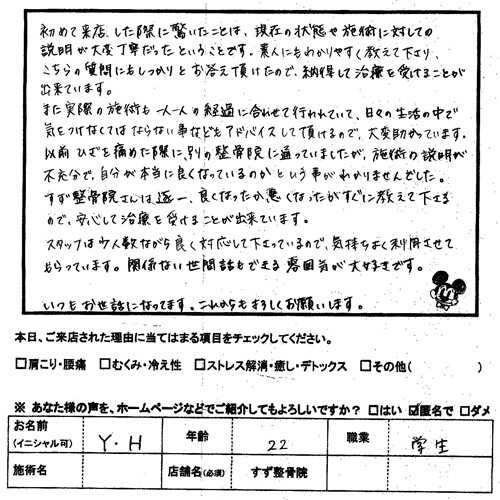 初めて来店した際に驚いたことは、現在の状態や施術に対しての
説明が大変丁寧だったということです。素人にもわかりやすく教えて下さり、
こちらの質問にもしっかりとお答え頂けたので、納得して治療を受けることが
出来ています。
また実際の施術も一人一人の経過に合わせて行われていて、日々の生活の中で
気をつけなくてはならない事などもアドバイスして頂けるので、大変助かっています。
以前ひざを痛めた際に別の整骨院に通っていましたが、施術の説明が
不充分で、自分が本当に良くなっているのかという事がわかりませんでした。
すず整骨院さんは逐一、良くなったか悪くなったかすぐに教えて下さる
ので、安心して治療を受けることが出来ています。
スタッフは少人数ながら良く対応して下さっているので、気持ちよく利用させて
もらっています。関係ない世間話もできる雰囲気が大好きです。
いつもお世話になってます。これからもよろしくお願いします。
本日、ご来店された理由に当てはまる項目をチェックしてください。
□肩こり・腰痛 □むくみ・冷え性 □ストレス解消・癒し・デトックス □その他( )
※ あなた様の声を、ホームページなどでご紹介してもよろしいですか？ □はい ☑匿名で □ダメ
お名前 (イニシャル可) Y・H 年齢 22 職業 学生
施術名 店舗名(必須) すず整骨院